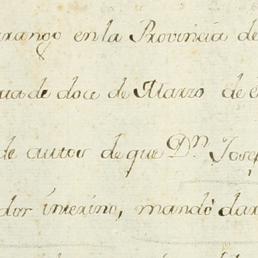 rango en la Provincia de
gua de doce de Marzo de e
de autos de que Dn Josep
dor interino, mandó dar